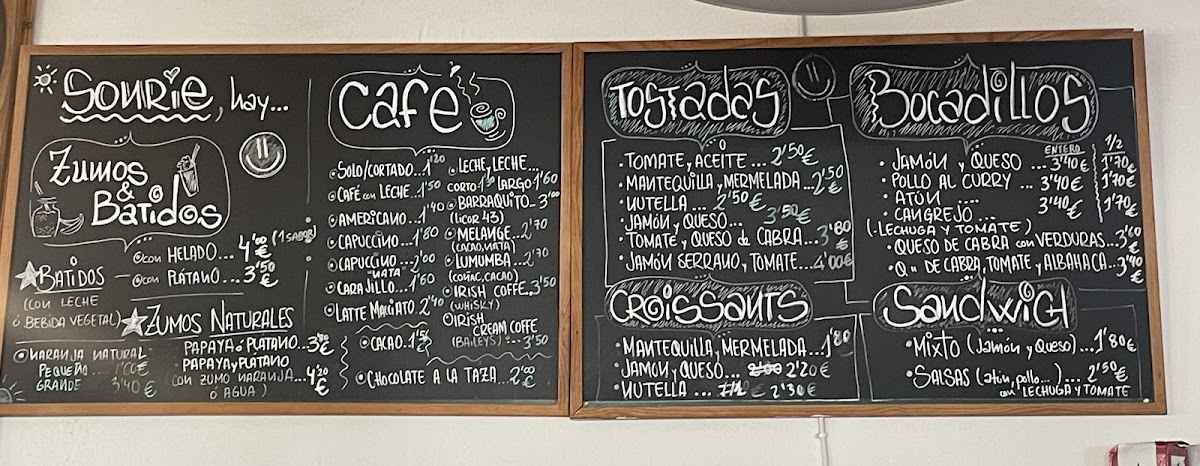 Sonrie, hay...
Zumos
& Batidos
con HELADO ... 4'00 € (1 SABOR)
BATIDOS
con PLÁTANO ... 3'50 €
(CON LECHE
ó BEBIDA VEGETAL)
ZUMOS NATURALES
NARANJA NATURAL
PEQUEÑO ....
GRANDE 3'40 €
PAPAYA ó PLÁTANO...
PAPAYA y PLÁTANO
(CON ZUMO NARANJA ... 4'20 €
ó AGUA)
Café
SOLO/CORTADO ... 1'20
CAFÉ con LECHE . 1'50
AMERICANO... 1'40
CAPUCCINO ... 1'80
CAPUCCINO ... 2'00
"NATA"
CARAJILLO... 1'60
LATTE MACIATO 2'40
CACAO...
CHOCOLATE A LA TAZA ... 2'00 €
LECHE, LECHE ...
CORTO LARGO 1'60
BARRAQUITO... 3'00
(licor 43)
MELANGE ... 2'70
(CACAO, NATA)
LUMUMBA ... 2'70
(COÑAC, CACAO)
IRISH COFFE. 3'50
(WHISKY)
IRISH
CREAM COFFE
(BAILEYS) ... 3'50
TOSTADAS
TOMATE y ACEITE ... 2'50 €
MANTEQUILLA y MERMELADA ... 2'50 €
NUTELLA ... 2'50 €
JAMÓN y QUESO ... 3'50 €
TOMATE y QUESO de CABRA... 3'80 €
JAMÓN SERRANO, TOMATE... 4'00 €
CROISSANTS
MANTEQUILLA, MERMELADA ... 1'80
JAMON y QUESO... 2'00 2'20 €
NUTELLA ... 2'30 €
Bocadillos
ENTERO 1/2
JAMÓN y QUESO ... 3'40 € 1'70 €
POLLO AL CURRY ... 3'40 € 1'70 €
ATÚN ....
CANGREJO ... 3'40 € 1'70 €
(-LECHUGA Y TOMATE)
QUESO DE CABRA con VERDURAS... 3'60 €
Q" DE CABRA, TOMATE y ALBAHACA... 3'40 €
SANDWICH
MIXTO (Jamón y Queso) ... 1'80 €
SALSAS (atún, pollo...) ... 2'50 €
con LECHUGA Y TOMATE